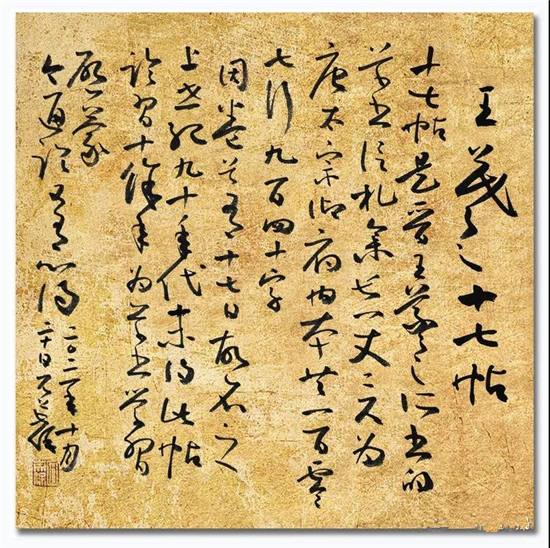 王羲之十七帖
十七帖是晋王羲之所书的
草书信札全长一丈二尺为
唐太宗御府内本共一百零
七行九百四十字
因卷首有十七日故名之
上世纪九十年代末得此帖
临习十余年为草书学习
启蒙
今通临有心得二〇二一年十月
二十日